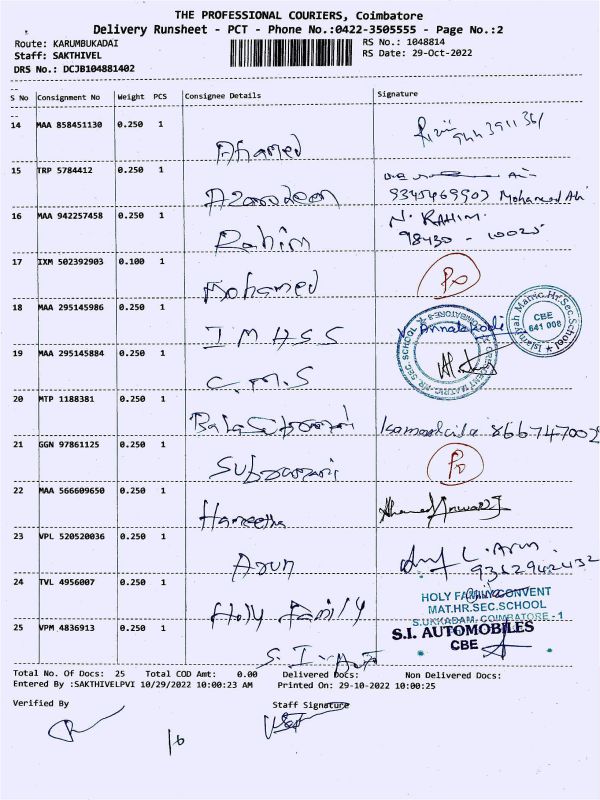 THE PROFESSIONAL COURIERS, Coimbatore
Delivery Runsheet - PCT - Phone No.:0422-3505555 - Page No.:2
Route: KARUMBUKADAI
Staff: SAKTHIVEL
DRS No.: DCJB104881402
RS No.: 1048814
RS Date: 29-Oct-2022
S No Consignment No Weight PCS Consignee Details Signature
14 MAA 858451130 0.250 1
Ahamed
15 TRP 5784412 0.250 1
Azarudeen 9345469907 Mohamed Ali
16 MAA 942257458 0.250 1 N. RAHIM.
Rahim 98430 - 10025
17 IXM 502392903 0.100 1
Mohamed Po
18 MAA 295145986 0.250 1
I M H S S
Islamiyah Matric.Hr.Sec.School
CBE
641 008
19 MAA 295145884 0.250 1
C.M.S
20 MTP 1188381 0.250 1
21 GGN 97861125 0.250 1
Po
22 MAA 566609650 0.250 1
23 VPL 520520036 0.250 1
Arun
24 TVL 4956007 0.250 1
Holy Family
HOLY FAMILY CONVENT
MAT.HR.SEC.SCHOOL
S.UKKADAM, COIMBATORE - 1
25 VPM 4836913 0.250 1 S.I. AUTOMOBILES
CBE
Total No. Of Docs: 25 Total COD Amt: 0.00 Delivered Docs: Non Delivered Docs:
Entered By :SAKTHIVELPVI 10/29/2022 10:00:23 AM Printed On: 29-10-2022 10:00:25
Verified By Staff Signature